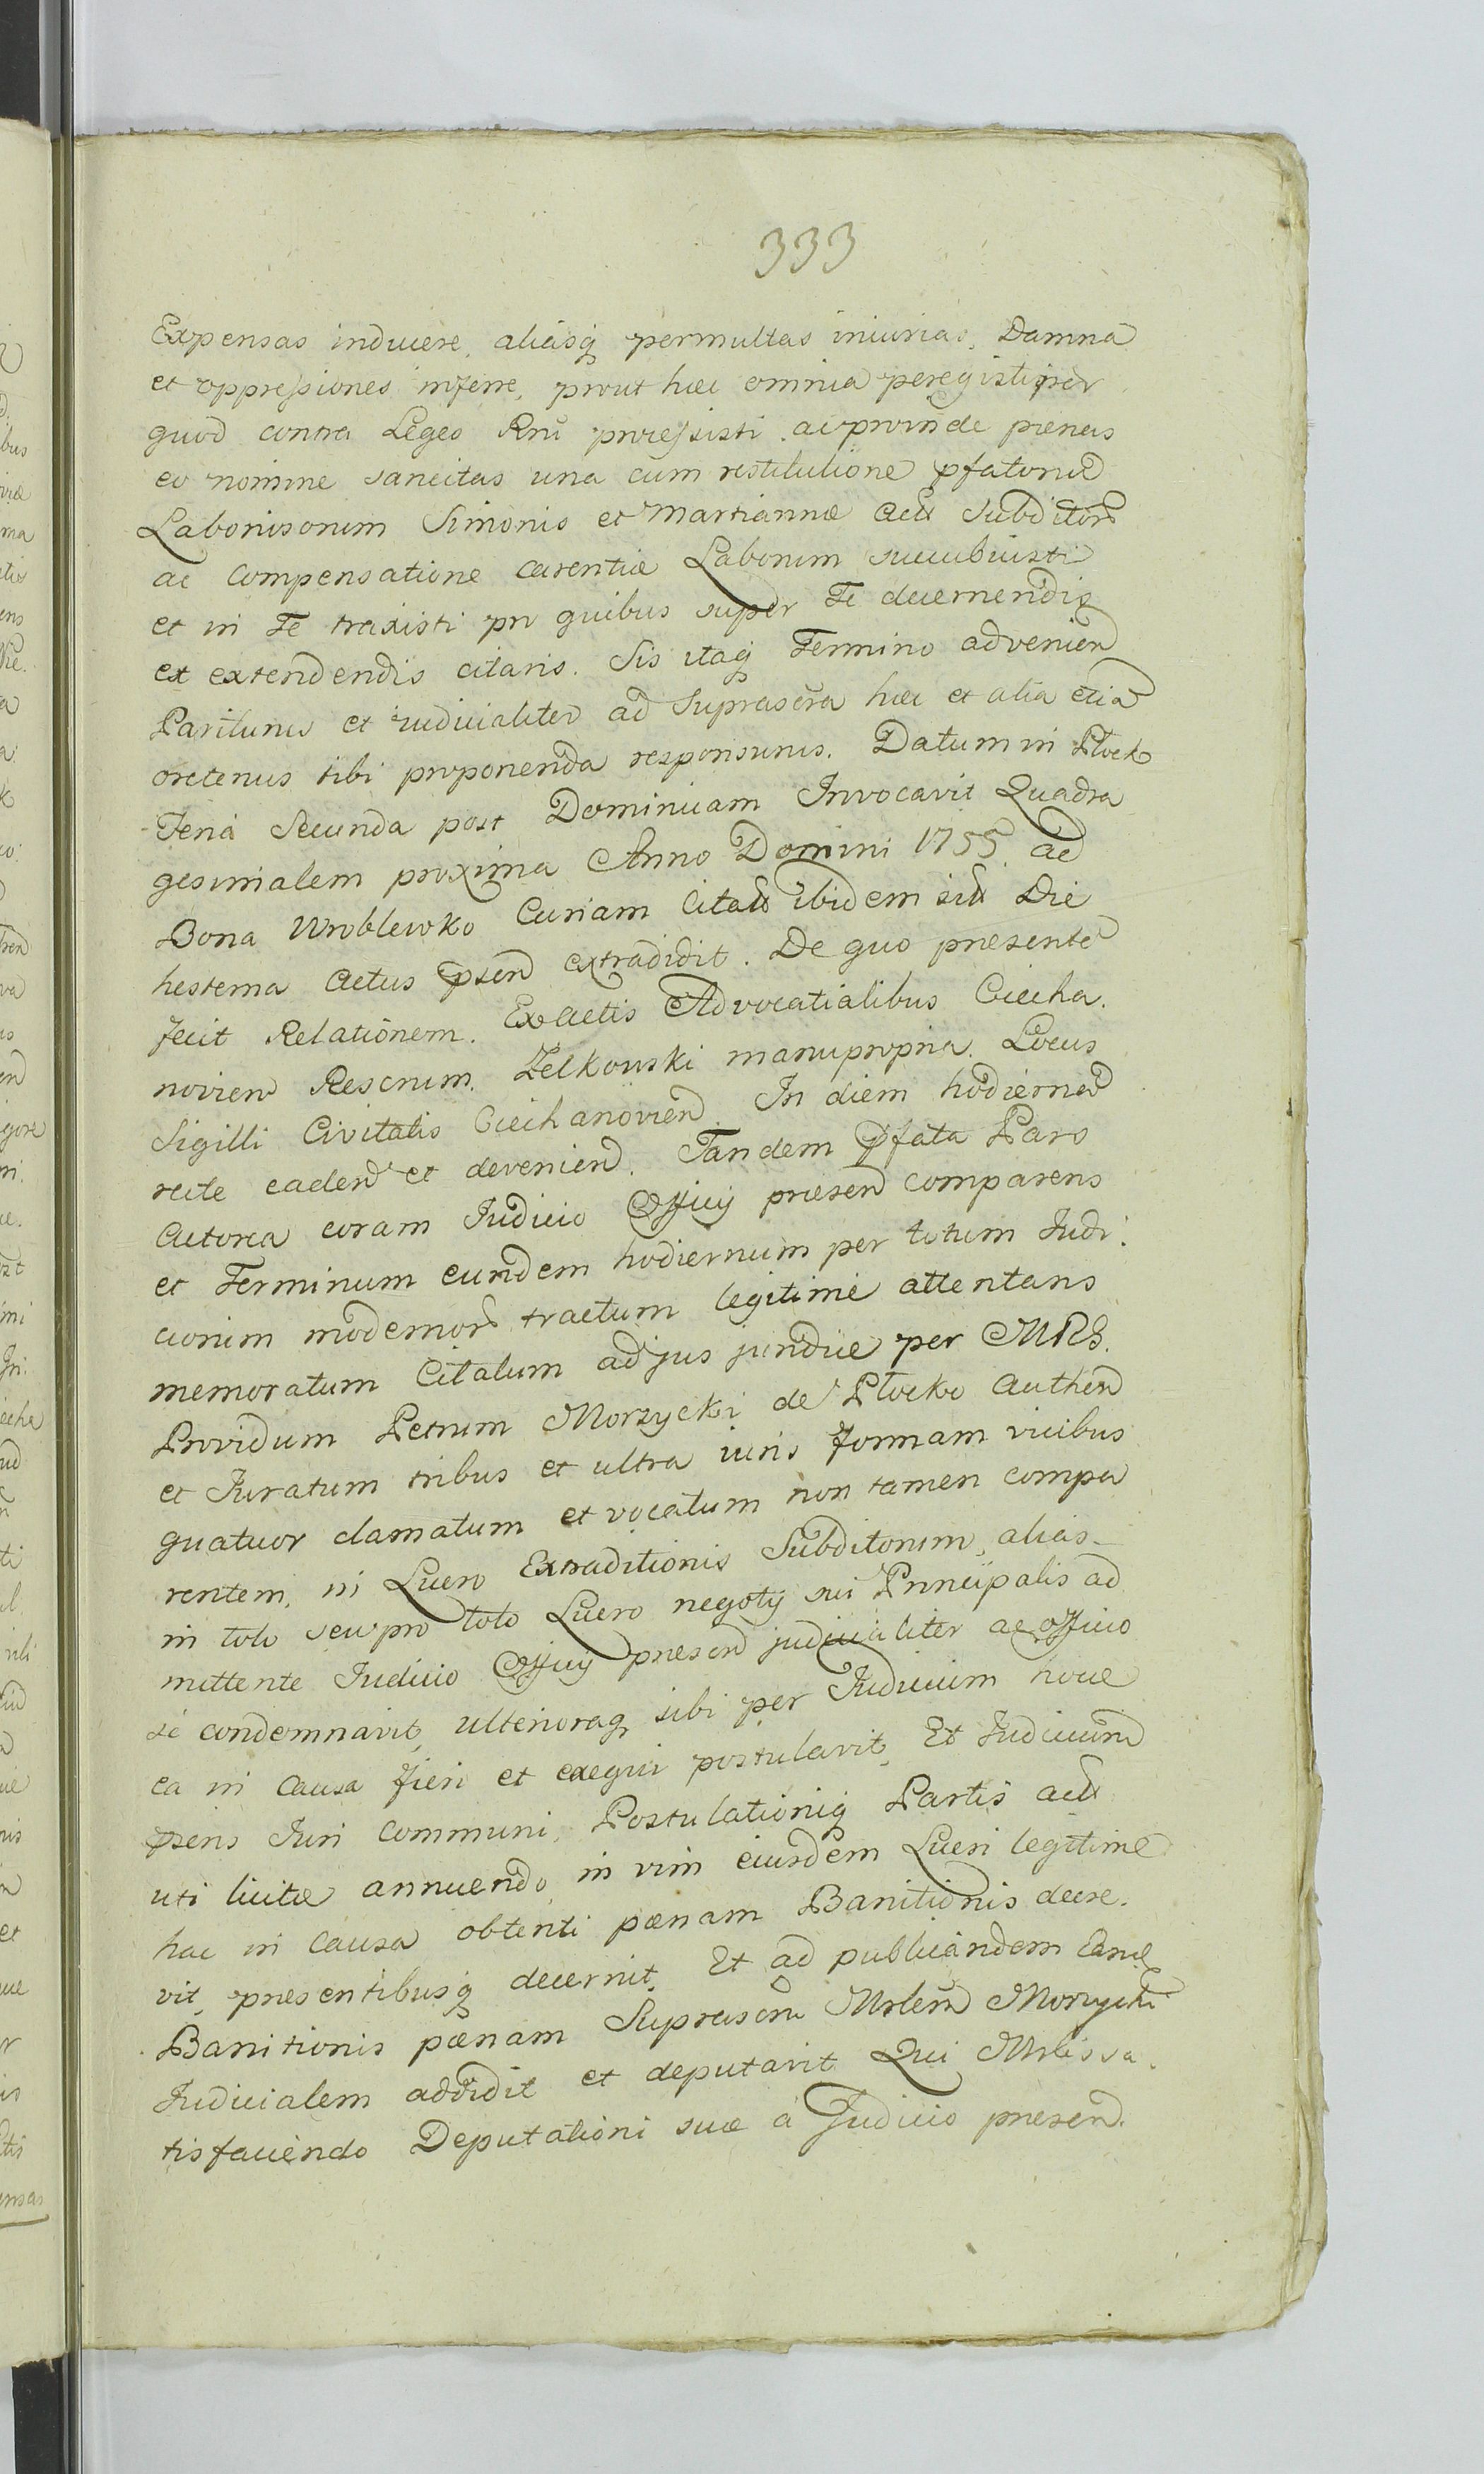 333
Expensas inducere, aliasq permultas iniurias, Damna
et oppressiones inferre, prout hæc omnia peregisti per
quod contra Leges Rnī processisti. ac proinde pœnas
eo nomine sancitas una cum restitutione pfatorū
Laboriosorum Simonis et Martiannæ Actt Subditor
ac compensatione carentiæ Laborum succubuisti
et in Te traxisti pro quibus super Te decernendis
et extendendis citaris. Sis itaq Termino advenien
Pariturus et iudicialiter ad Suprascra hæc et alia etiā
oretenus tibi proponenda responsurus. Datum in Płock
Feria Secunda post Dominicam Invocavit Quadra
gesimalem proxima Anno Domini 1755. ad
Bona Wroblewko Curiam Citatt ibidem sitt Die
hesterna Actus psen extradidit. De quo presentē
fecit Relationem. Ex Actis Advocatialibus Ciecha.
novien Rescrum. Zelkowski manu propria. Locus
Sigilli Civitatis Ciechanovien. In diem hodiernā
recte caden et devenien. Tandem pfata Pars
Actorea coram Iudicio Officÿ presen comparens
et Terminum eundem hodiernum per totum Iudi:
ciorum modernor tractum legitime attentans
memoratum Citatum ad jus juridice per MRS.
Providum Petrum Morzycki de Płocko Authen
et Iuratum tribus et ultra iuris formam vicibus
quatuor clamatum et vocatum non tamen compa
rentem, in Lucro Extraditionis Subditorum, alias
in toto seu pro toto Lucro negotÿ sui Principalis ad
mittente Iudicio Officÿ presen judicialiter ac officio
sè condemnavit, ulterioraq sibi per Iudicium hocce
ea in causa fieri et exequi postulavit, Et Iudicium
psens Iuri communi, Postulationiq Partis actt
uti licitæ annuendo, in vim eiusdem Lucri legitime
hac in causa obtenti pœnam Banitionis decre.
vit, presentibusq decernit. Et ad publicandam Eand
Banitionis pœnam Suprascrm Mrlem Morzycki
Iudicialem addidit et deputavit. Qui Mrlis sa.
tisfaciendo Deputationi suæ a Judicio presen.